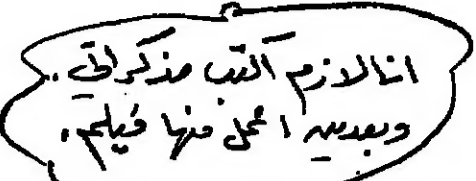 انا لازم اكتب مذكراتي ..
وبعدين اعمل منها فيلم .